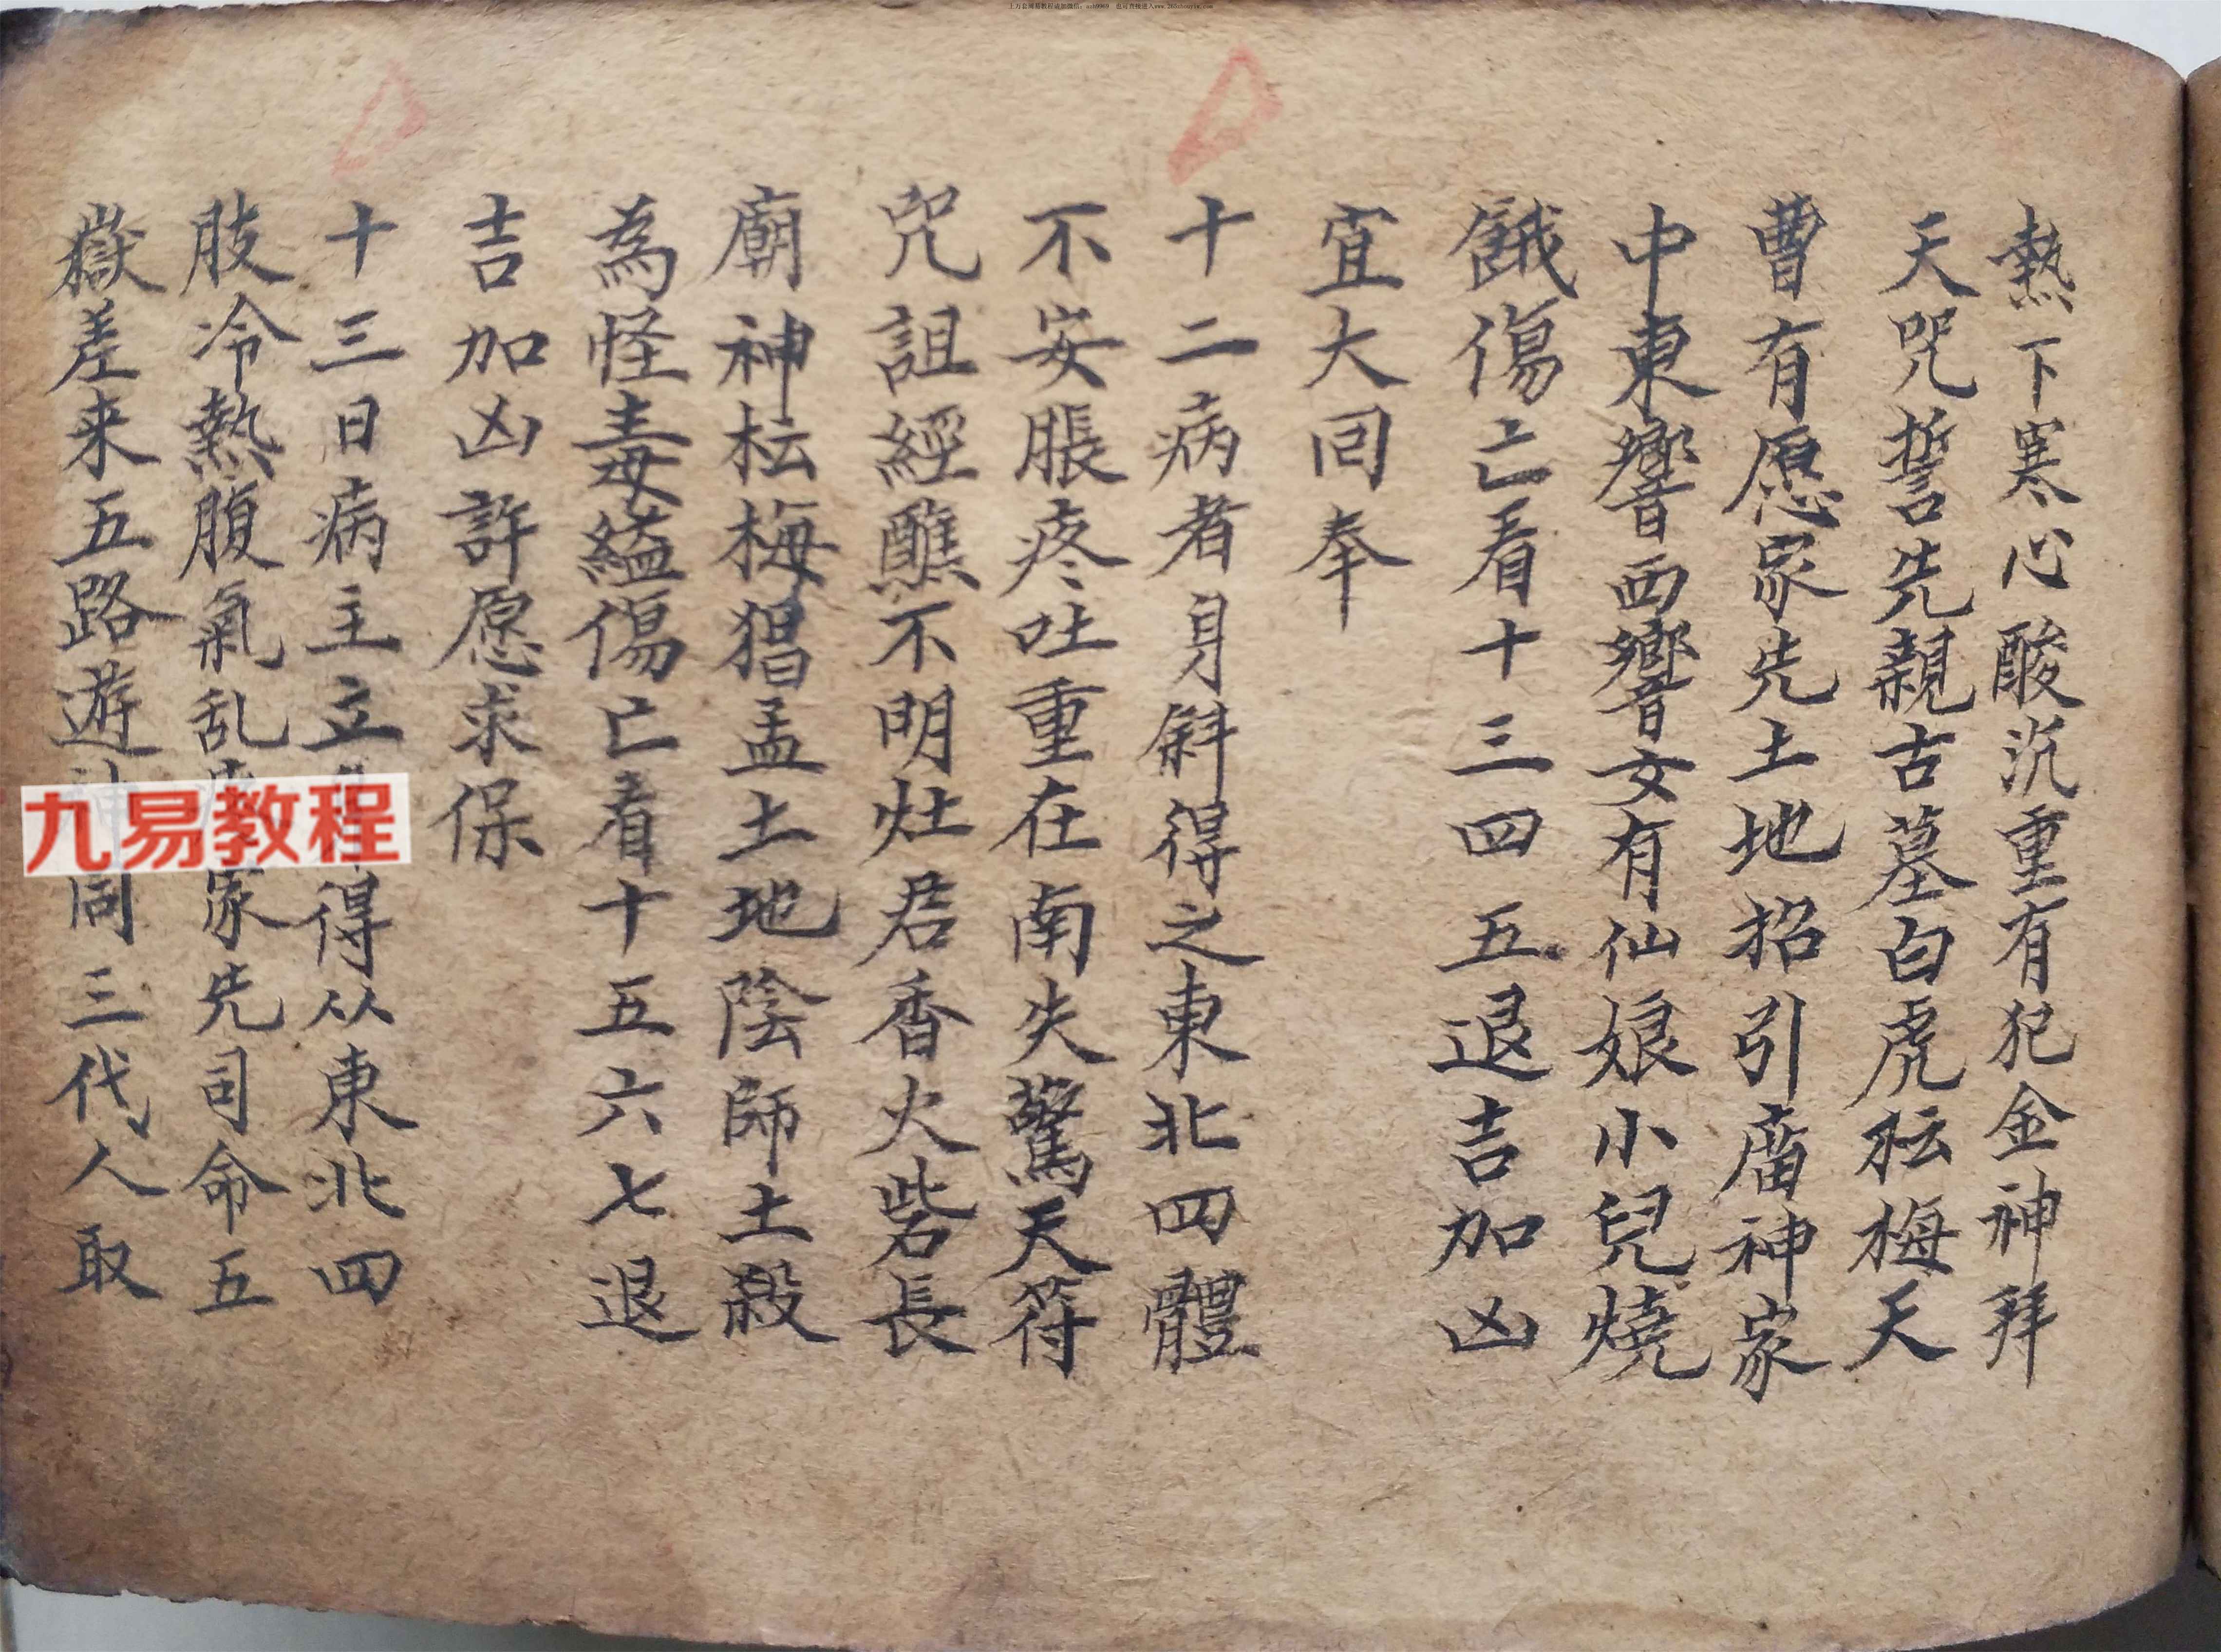 熱下寒心酸沉重有犯金神拜
天咒誓先親古墓白虎枟梅天
曹有愿家先土地招引庙神家
中東響西響女有仙娘小兒燒
餓傷亡看十三四五退吉加凶
宜大回奉
十二病者身斜得之東北四體
不安脹疼吐重在南失驚天符
咒詛經醮不明灶君香火砦長
廟神枟梅猖孟土地陰師土殺
為怪毒蠱傷亡看十五六七退
吉加凶許愿求保
十三日病主立得从東北四
肢冷熱腹氣乱家先司命五
嶽差来五路遊神同三代人取
九易教程